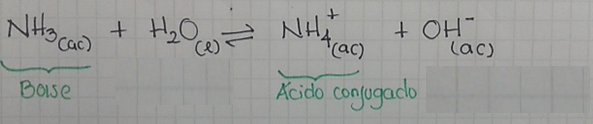 NH₃(ac) + H₂O(ℓ) ⇌ NH₄⁺(ac) + OH⁻(ac)
Base Ácido conjugado